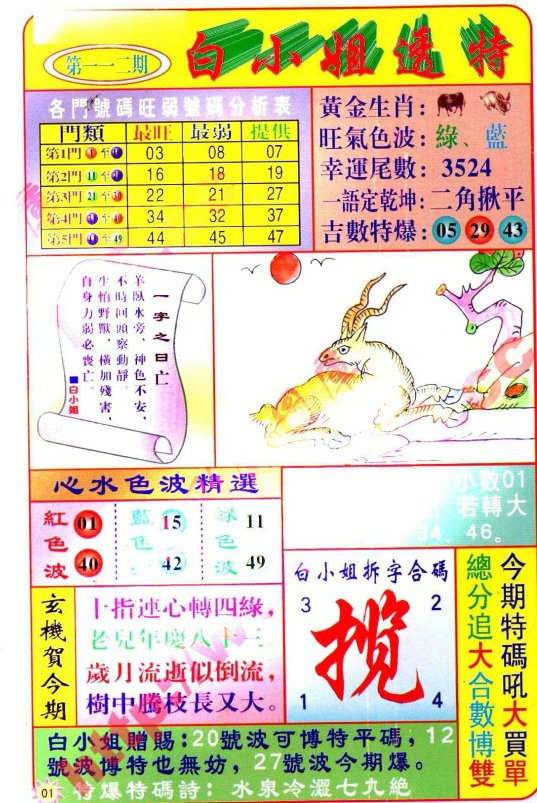 第一一二期
白小姐透特
各門號碼旺弱號碼分析表
門類 最旺 最弱 提供
第1門 1 至 03 08 07
第2門 11 至 16 18 19
第3門 21 至 22 21 27
第4門 至 34 32 37
第5門 至 49 44 45 47
黃金生肖:
旺氣色波: 綠、藍
幸運尾數: 3524
一語定乾坤: 二角揪平
吉數特爆: 05 29 43
一字之曰亡
羊臥水旁,神色不安,
不時回頭察動靜。
生怕野獸,橫加殘害,
自身力弱必喪亡。
■白小姐
心水色波精選
紅色波 01 40
藍色 15 42
綠色波 11 49
小數01
若轉大
34、46。
玄機賀今期
十指連心轉四綠,
老兒年慶八十三
歲月流逝似倒流,
樹中騰枝長又大。
白小姐拆字合碼
3 2
揽
1 4
今期特碼吼大買單
總分追大合數博雙
白小姐贈賜:20號波可博特平碼,12
號波博特也無妨,27號波今期爆。
特爆特碼詩: 水泉冷澀七九絶
01